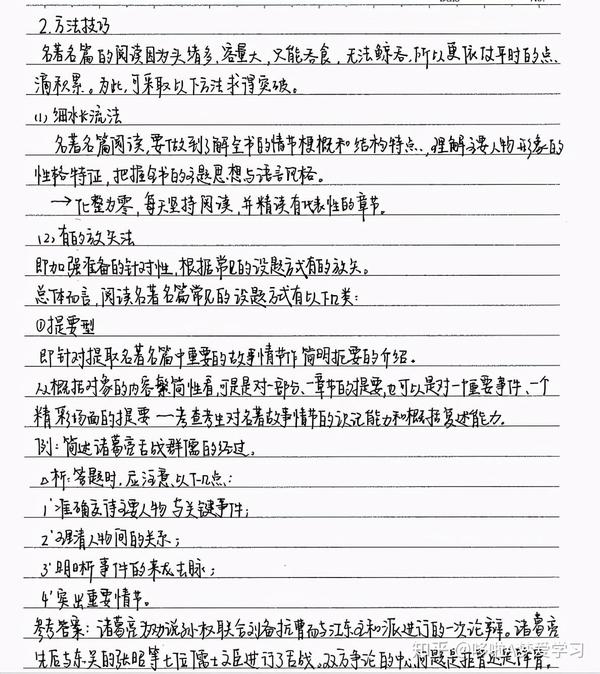 2.方法技巧
名著名篇的阅读因为头绪多,容量大,只能吞食,无法鲸吞,所以更依仗平时的点
滴积累。为此,可采取以下方法求得突破。
(1)细水长流法
名著名篇阅读,要做到了解全书的情节梗概和结构特点,理解主要人物形象的
性格特征,把握全书的主题思想与语言风格。
→化整为零,每天坚持阅读,并精读有代表性的章节。
(2)有的放矢法
即加强准备的针对性,根据常见的设题方式有的放矢。
总体而言,阅读名著名篇常见的设题方式有以下几类:
①提要型
即针对提取名著名篇中重要的故事情节作简明扼要的介绍。
从概括对象的内容繁简性看,可是是对一部分、一章节的提要,也可以是对一重要事件、一个
精彩场面的提要——考查考生对名著故事情节的认记能力和概括复述能力。
例:简述诸葛亮舌战群儒的经过。
△析:答题时,应注意以下几点:
1'准确交待主要人物与关键事件;
2'理清人物间的关系;
3'明晰事件的来龙去脉;
4'突出重要情节。
参考答案:诸葛亮为劝说孙权联合刘备抗曹而与江东主和派进行的一次论辩。诸葛亮
先后与东吴的张昭等七位儒士文臣进行了舌战。双方争论的中心问题是拒曹还是降曹。
知乎 @哆啦A梦爱学习